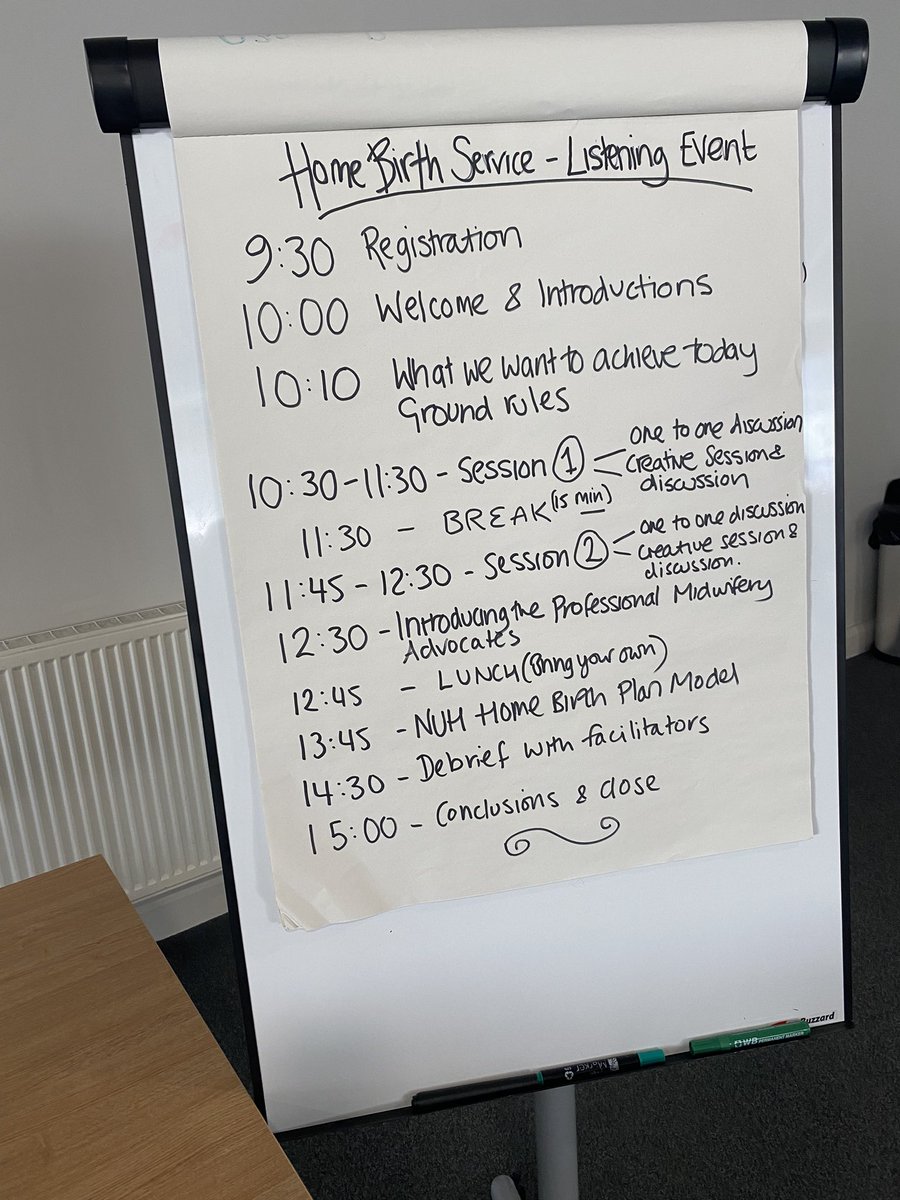 Home Birth Service - Listening Event
9:30 Registration
10:00 Welcome & Introductions
10:10 What we want to achieve today
Ground rules
10:30-11:30 - Session 1 one to one discussion
creative session &
discussion
11:30 - BREAK (15 min)
11:45 - 12:30 - Session 2 one to one discussion
creative session &
discussion.
12:30 - Introducing the Professional Midwifery
Advocates
12:45 - LUNCH (Bring your own)
13:45 - NUH Home Birth Plan Model
14:30 - Debrief with facilitators
15:00 - Conclusions & close
Buzzard
WB PERMANENT MARKER
Marker